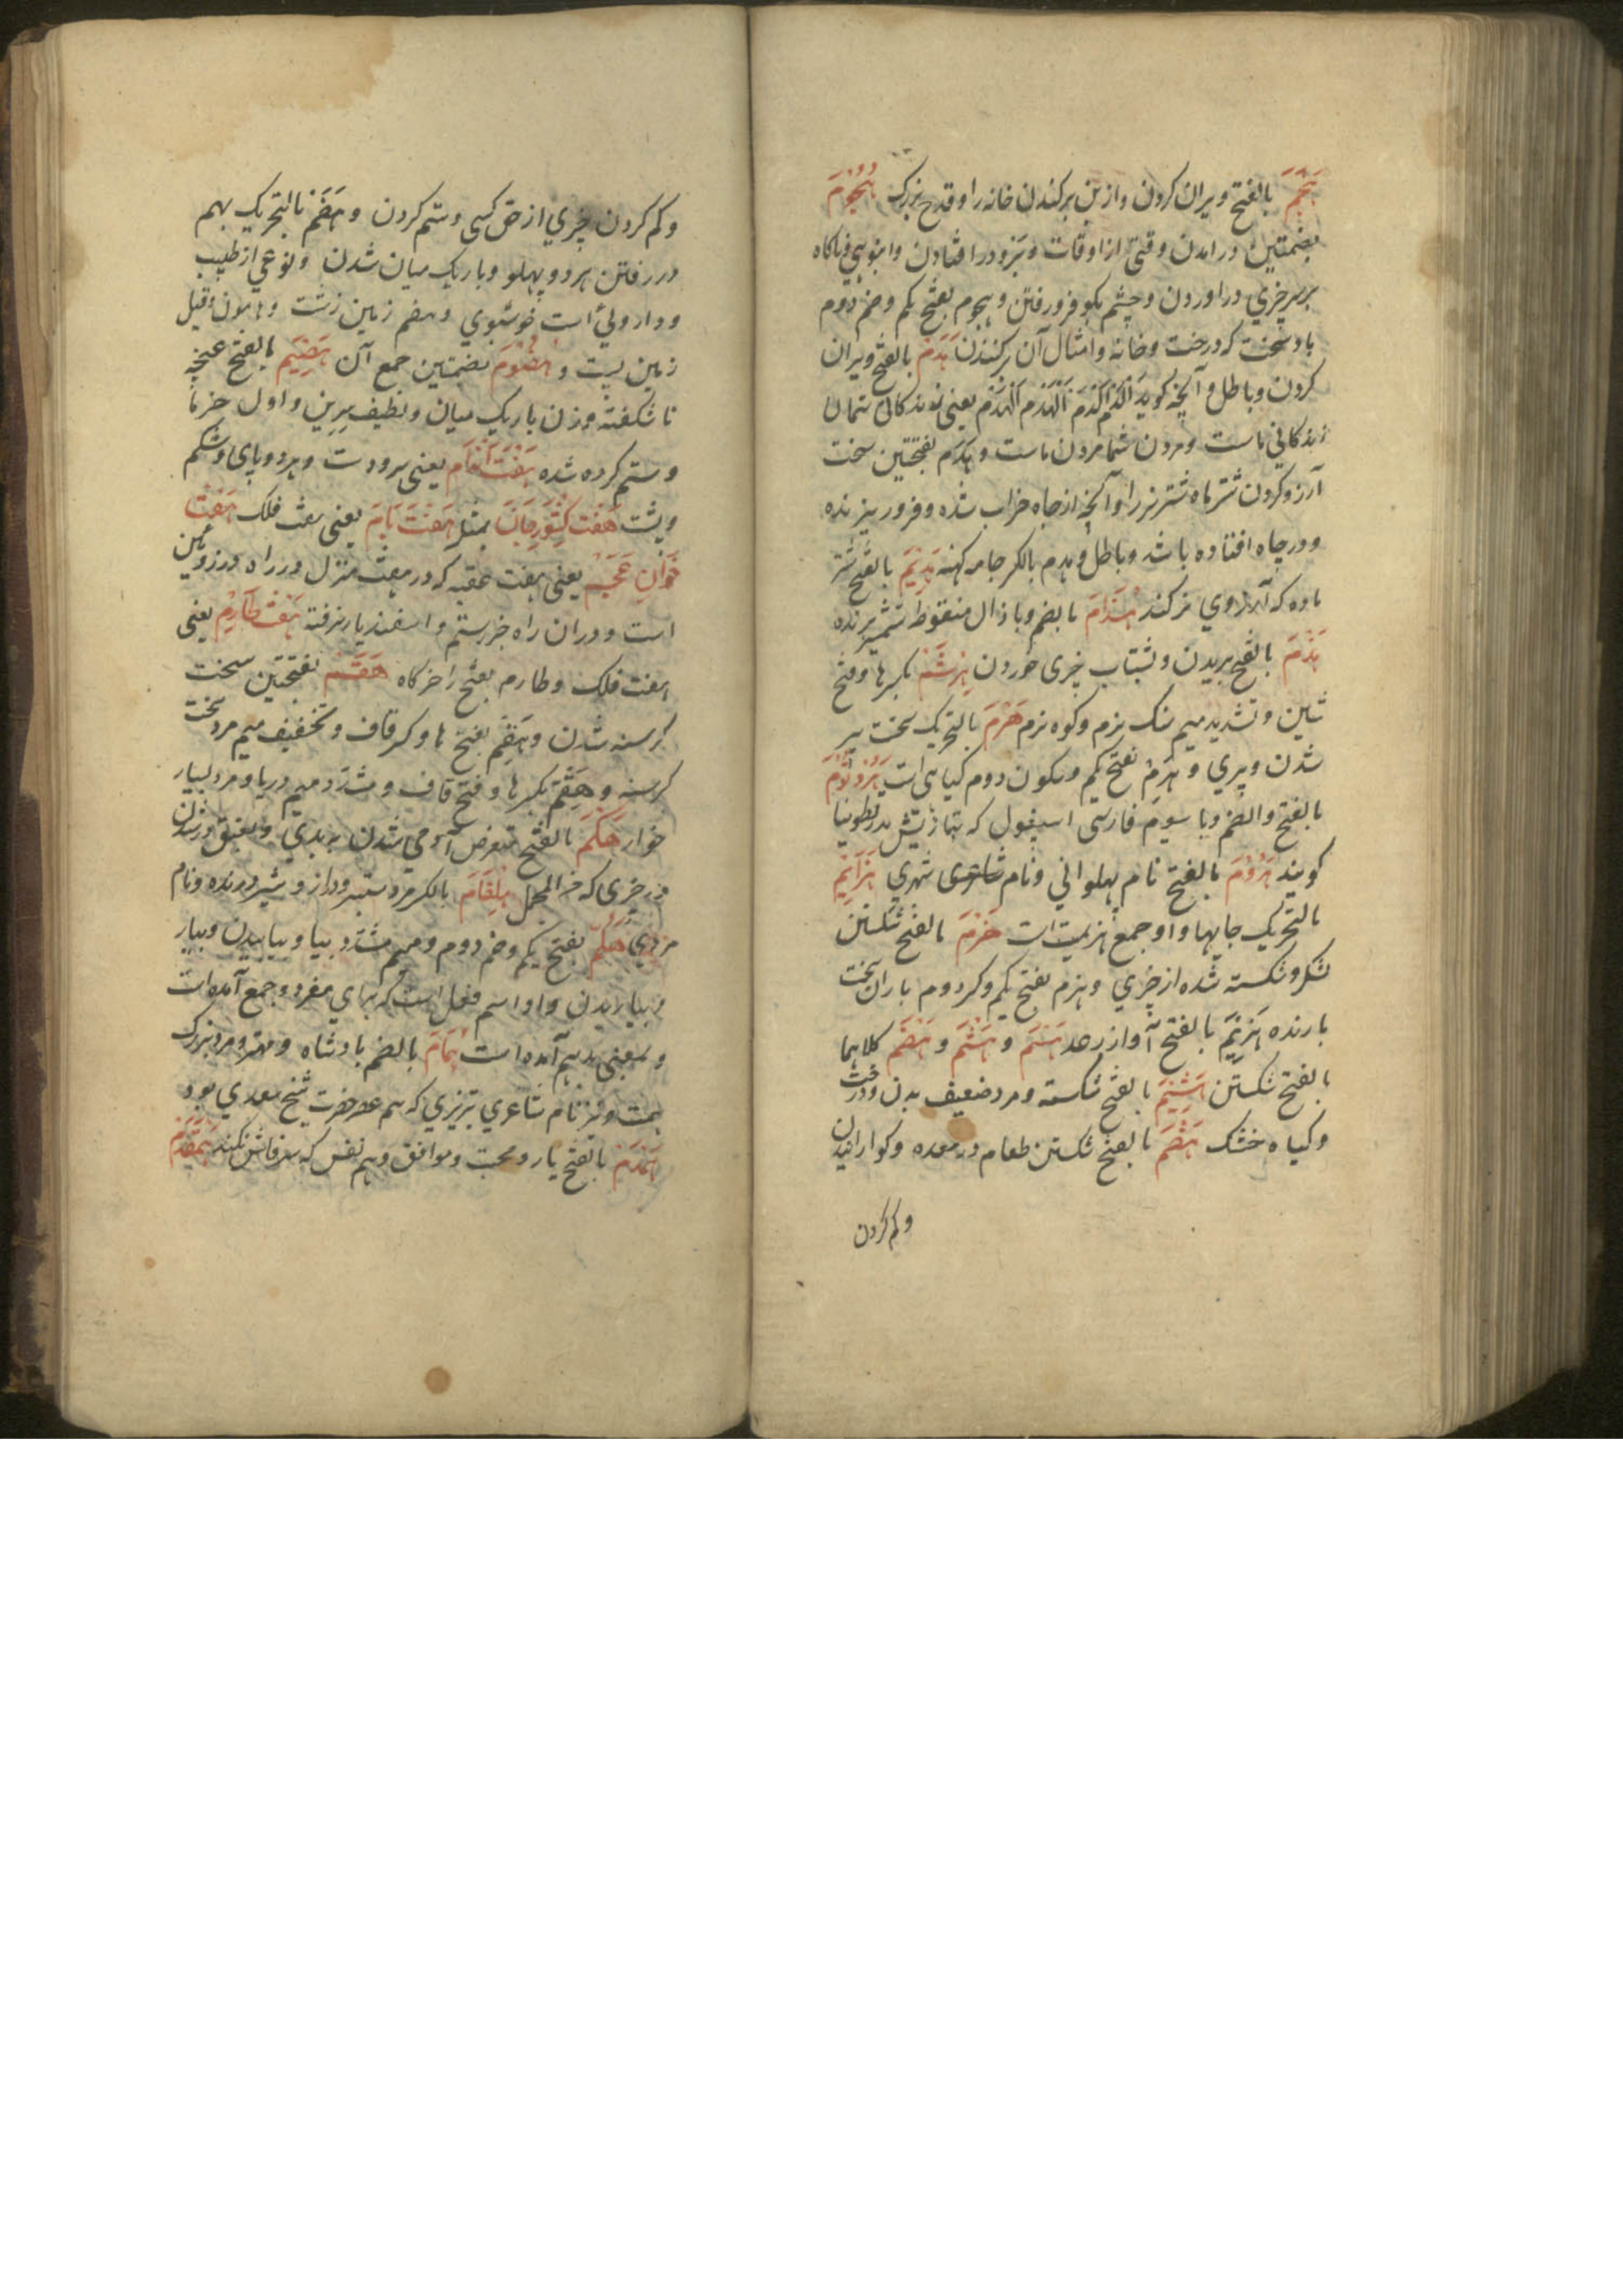 هَجْم بالفتح ویران کردن و از بن برکندن خانه را و قدح بزرک هُجُوْم
بضمتین درامدن وقتی از اوقات و بزودر افتادن و انبوهی و ناکاه
بر سر چیزی دراوردن و چشم بکو فرو رفتن و هجوم بفتح یکم و ضم دوم
باد سخت که درخت و خانه و امثال آن برکندن هَدْم بالفتح ویران
کردن و باطل و آنچه کوید الدم الدم الهدم الهدم یعنی زندکانی شمایان
زندکانی ماست و مردن شما مردن ماست و هدم بفتحتین سخت
آرزو کردن شتر ماده شتر نر را و آنچه از چاه خراب شده و فرو ریزنده
و در چاه افتاده باشد و باطل و هدم بالکسر جامه کهنه هَدِیْم بالفتح شتر
ماده که آرزوی نر کند هُذَام بالضم و با ذال منقوط شمشیر برنده
هَذْم بالفتح بریدن و بشتاب چیزی خوردن هِرْشَم بکسر ها و فتح
شین و تشدید میم سنک نرم و کوه نرم هَرَم بالتحریک سخت پیر
شدن و پیری و هَرْم بفتح یکم و سکون دوم کیاهی است
بالفتح والضم و با سوم فارسی اسپغول که بتازیش بذرقطونیا
کویند هَرُوْم بالفتح نام پهلوانی و نام شهری هَزَایِم
بالتحریک جایها و او جمع هزیمت است هَزْم بالفتح شکستن
لشکر و شکسته شده از چیزی و هزم بفتح یکم و کسر دوم باران سخت
بارنده هَزِیْم بالفتح آواز رعد هَسْم و هَشْم و هَضْم کلاهما
بالفتح شکستن هَشِیْم بالفتح شکسته و مرد ضعیف بدن و درخت
و کیاه خشک هَضْم بالفتح شکستن طعام در معده و کوارانیدن
و کم کردن
و کم کردن چیزی از حق کسی و ستم کردن و هَضَم بالتحریک بهم
در رفتن هر دو پهلو و باریک میان شدن و نوعی از طیب
و داروئی است خوشبوی و هضم زمین زشت و هامون و قیل
زمین پست و هُضُوْم بضمتین جمع آن هَضِیْم بالفتح غنچه
ناشکفته و زن باریک میان و لطیف سرین و اول خرما
و ستم کرده شده هَفْت اَنْدَام یعنی سر و دست و هر دو پای و شکم
و پشت هَفْت کِشْوَر جَان بمثل هَفْت بَام یعنی هفت فلک هَفْت
خَوَان عَجَم یعنی هفت عقبه که در هفت منزل در راه درز روئین
است و در ان راه جز رستم و اسفندیار نرفته هَفْت طَارَم یعنی
هفت فلک و طارم بفتح را خرکاه هَقَم بفتحتین سخت
کرسنه شدن و هَقِم بفتح ها و کسر قاف و تخفیف میم مرد سخت
کرسنه و هِقَم بکسر ها و فتح قاف و مشدد میم دریا و مرد بسیار
خوار هَکْم بالفتح متعرض آدمی شدن به بدی و
در چیزی که فی المجمل هِلْقَام بالکسر مرد ستبر و دراز و شیر درنده و نام
مردی هَلُمّ بفتح یکم و ضم دوم و میم مشدد بیا و بیایید و بیار
و بیارید و او اسم فعل است که برای مفرد و جمع آمده است
و بمعنی بدهم آمده است هُمَام بالضم بادشاه و مهتر و مرد بزرک
همت و نیز نام شاعری تبریزی که هم عصر حضرت شیخ سعدی بود
هَمْدَم بالفتح یار و محبت و موافق و هم نفس که سر فاش نکند هَمْقَدَم